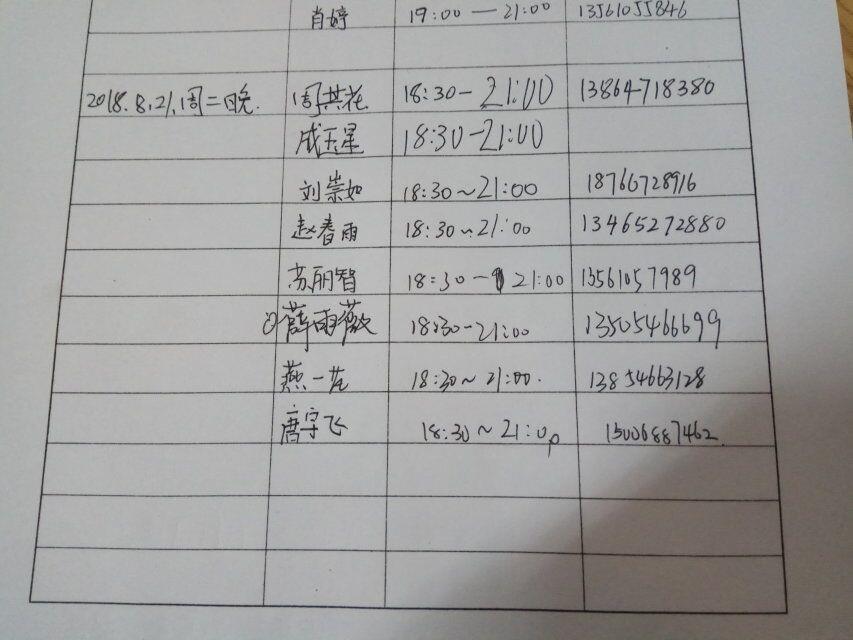 肖婷 19:00—21:00 13561055846
2018.8.21.周二晚. 周其花 18:30-21:00 13864718380
成玉星 18:30-21:00
刘崇如 18:30~21:00 18766728916
赵春雨 18:30~21:00 13465272880
苏丽智 18:30-21:00 13561057989
薛雨薇 18:30-21:00 13505466699
燕一 18:30~21:00. 13854663128
唐宇飞 18:30~21:00 15006887462.